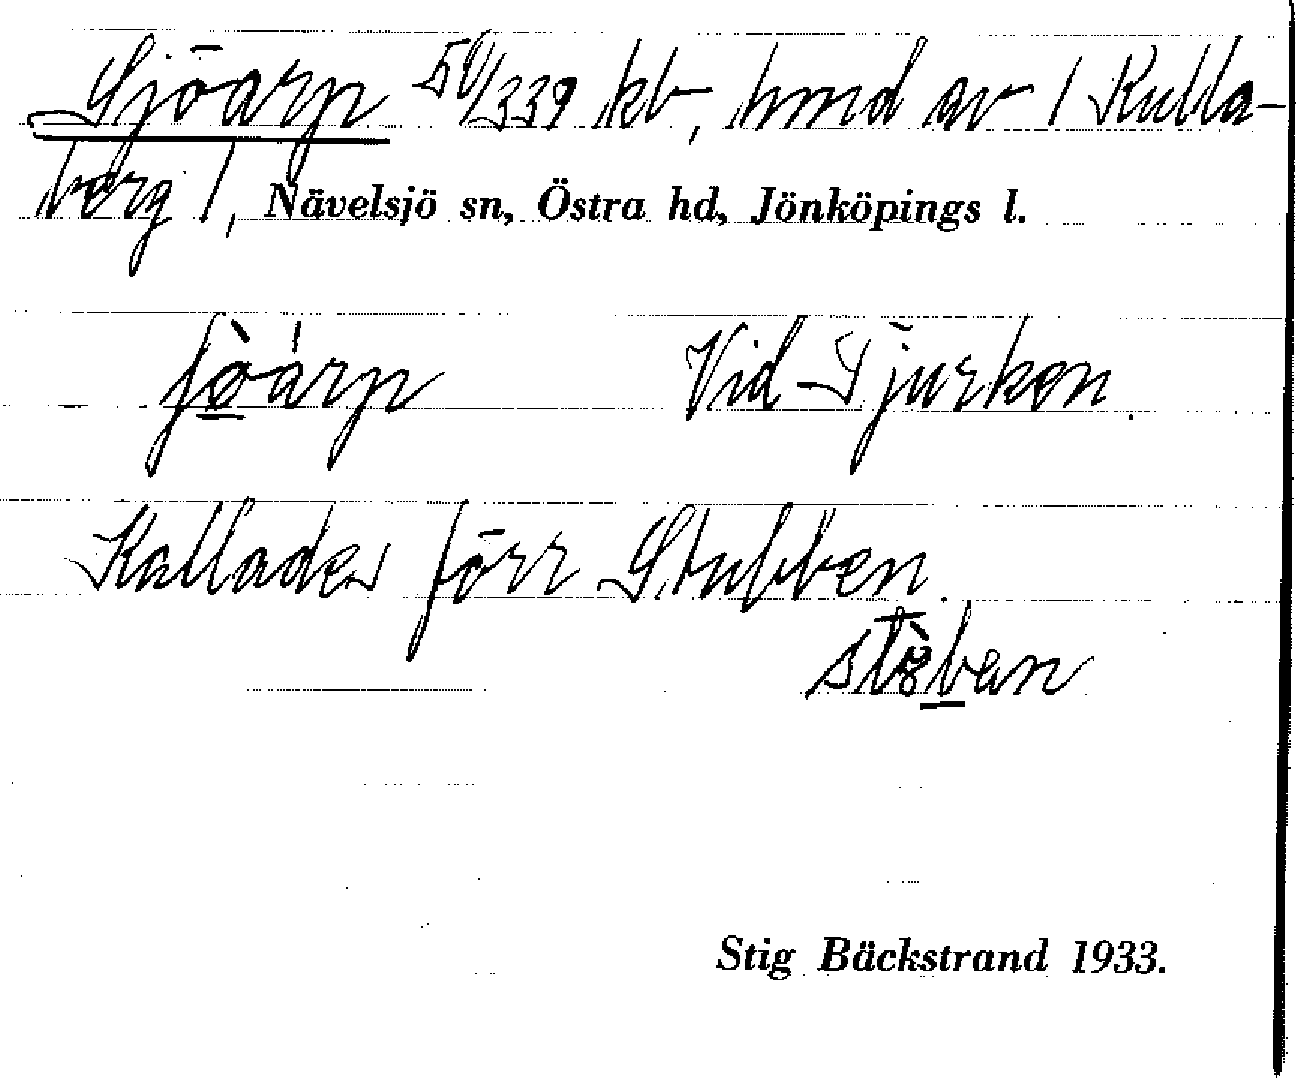 Sjöarp 50/339 kb, hmd av 1 Kulla-
berg 1, Nävelsjö sn, Östra hd, Jönköpings l.
jö̀árp Vid Sjurken.
Kallades förr Stubben.
Stig Bäckstrand 1933.